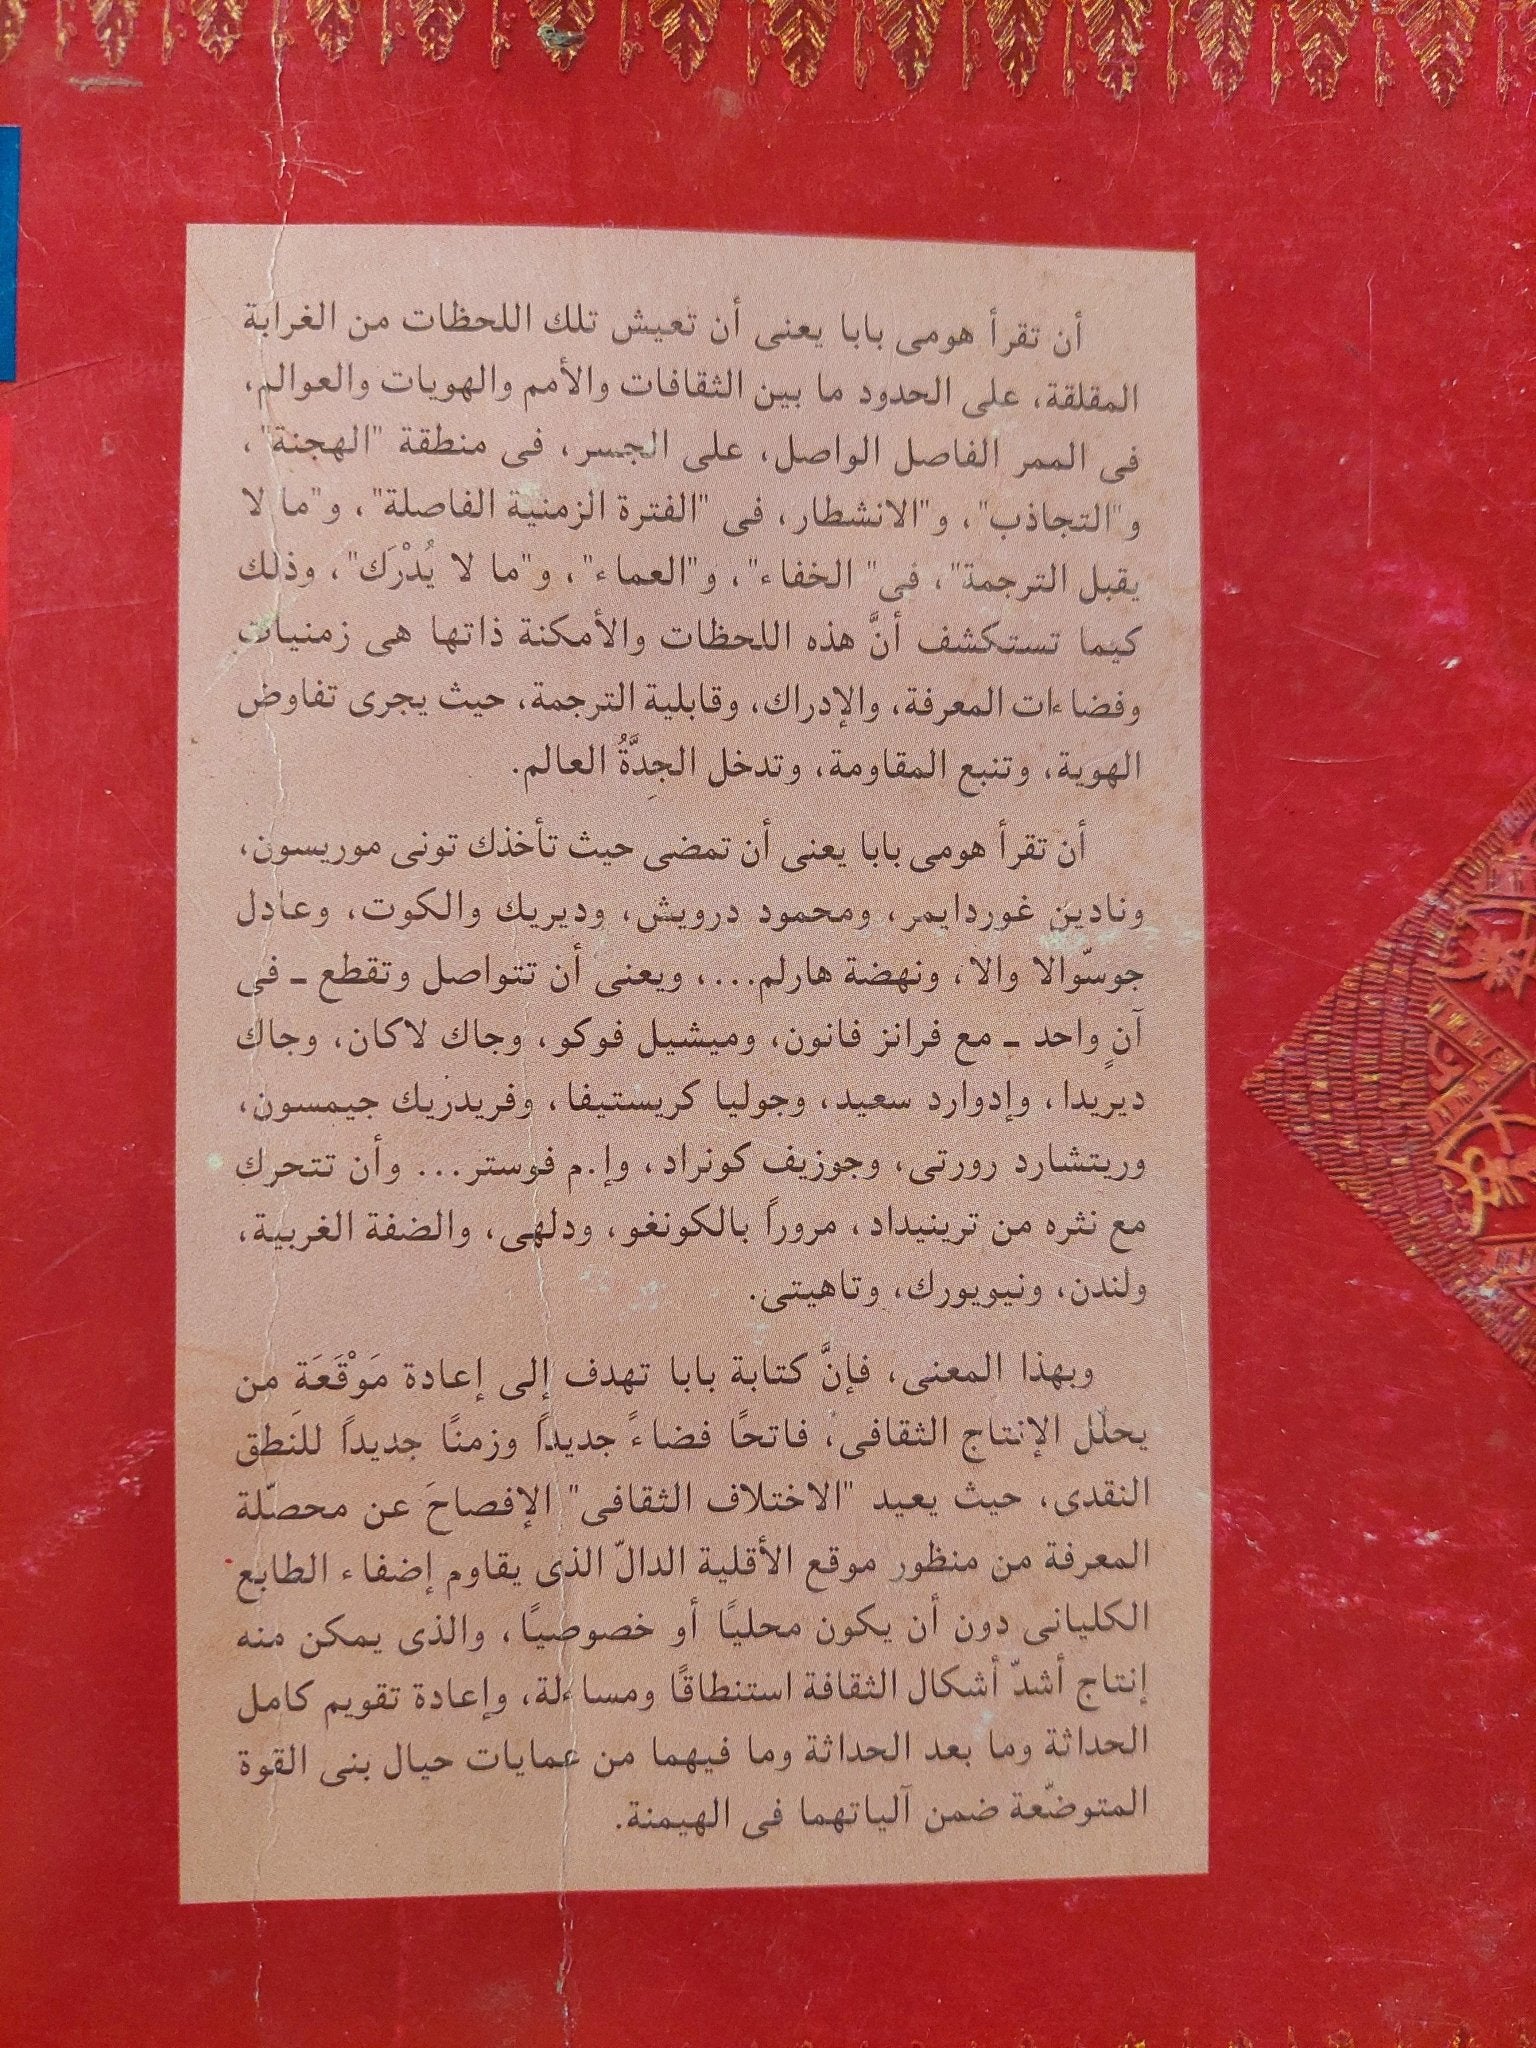 أن تقرأ هومى بابا يعنى أن تعيش تلك اللحظات من الغرابة
المقلقة، على الحدود ما بين الثقافات والأمم والهويات والعوالم،
فى الممر الفاصل الواصل، على الجسر، فى منطقة "الهجنة"،
و"التجاذب"، و"الانشطار، فى "الفترة الزمنية الفاصلة"، و"ما لا
يقبل الترجمة"، فى" الخفاء"، و"العماء"، و"ما لا يُدْرَك"، وذلك
كيما تستكشف أنَّ هذه اللحظات والأمكنة ذاتها هى زمنيات
وفضاءات المعرفة، والإدراك، وقابلية الترجمة، حيث يجرى تفاوض
الهوية، وتنبع المقاومة، وتدخل الجِدَّةُ العالم.
أن تقرأ هومى بابا يعنى أن تمضى حيث تأخذك تونى موريسون،
ونادين غوردايمر، ومحمود درويش، وديريك والكوت، وعادل
جوسّوالا والا، ونهضة هارلم...، ويعنى أن تتواصل وتقطع ـ فى
آنٍ واحد ـ مع فرانز فانون، وميشيل فوكو، وجاك لاكان، وجاك
ديريدا، وإدوارد سعيد، وجوليا كريستيفا، وفريدريك جيمسون،
وريتشارد رورتى، وجوزيف كونراد، وإ.م فوستر... وأن تتحرك
مع نثره من ترينيداد، مروراً بالكونغو، ودلهى، والضفة الغربية،
ولندن، ونيويورك، وتاهيتى.
وبهذا المعنى، فإنَّ كتابة بابا تهدف إلى إعادة مَوْقَعَةِ من
يحلّل الإنتاج الثقافى، فاتحًا فضاءً جديداً وزمنًا جديداً للنطق
النقدى، حيث يعيد "الاختلاف الثقافى" الإفصاحَ عن محصّلة
المعرفة من منظور موقع الأقلية الدالّ الذى يقاوم إضفاء الطابع
الكليانى دون أن يكون محليًا أو خصوصيًا، والذى يمكن منه
إنتاج أشدّ أشكال الثقافة استنطاقًا ومساءلة، وإعادة تقويم كامل
الحداثة وما بعد الحداثة وما فيهما من عمايات حيال بنى القوة
المتوضّعة ضمن آلياتهما فى الهيمنة.